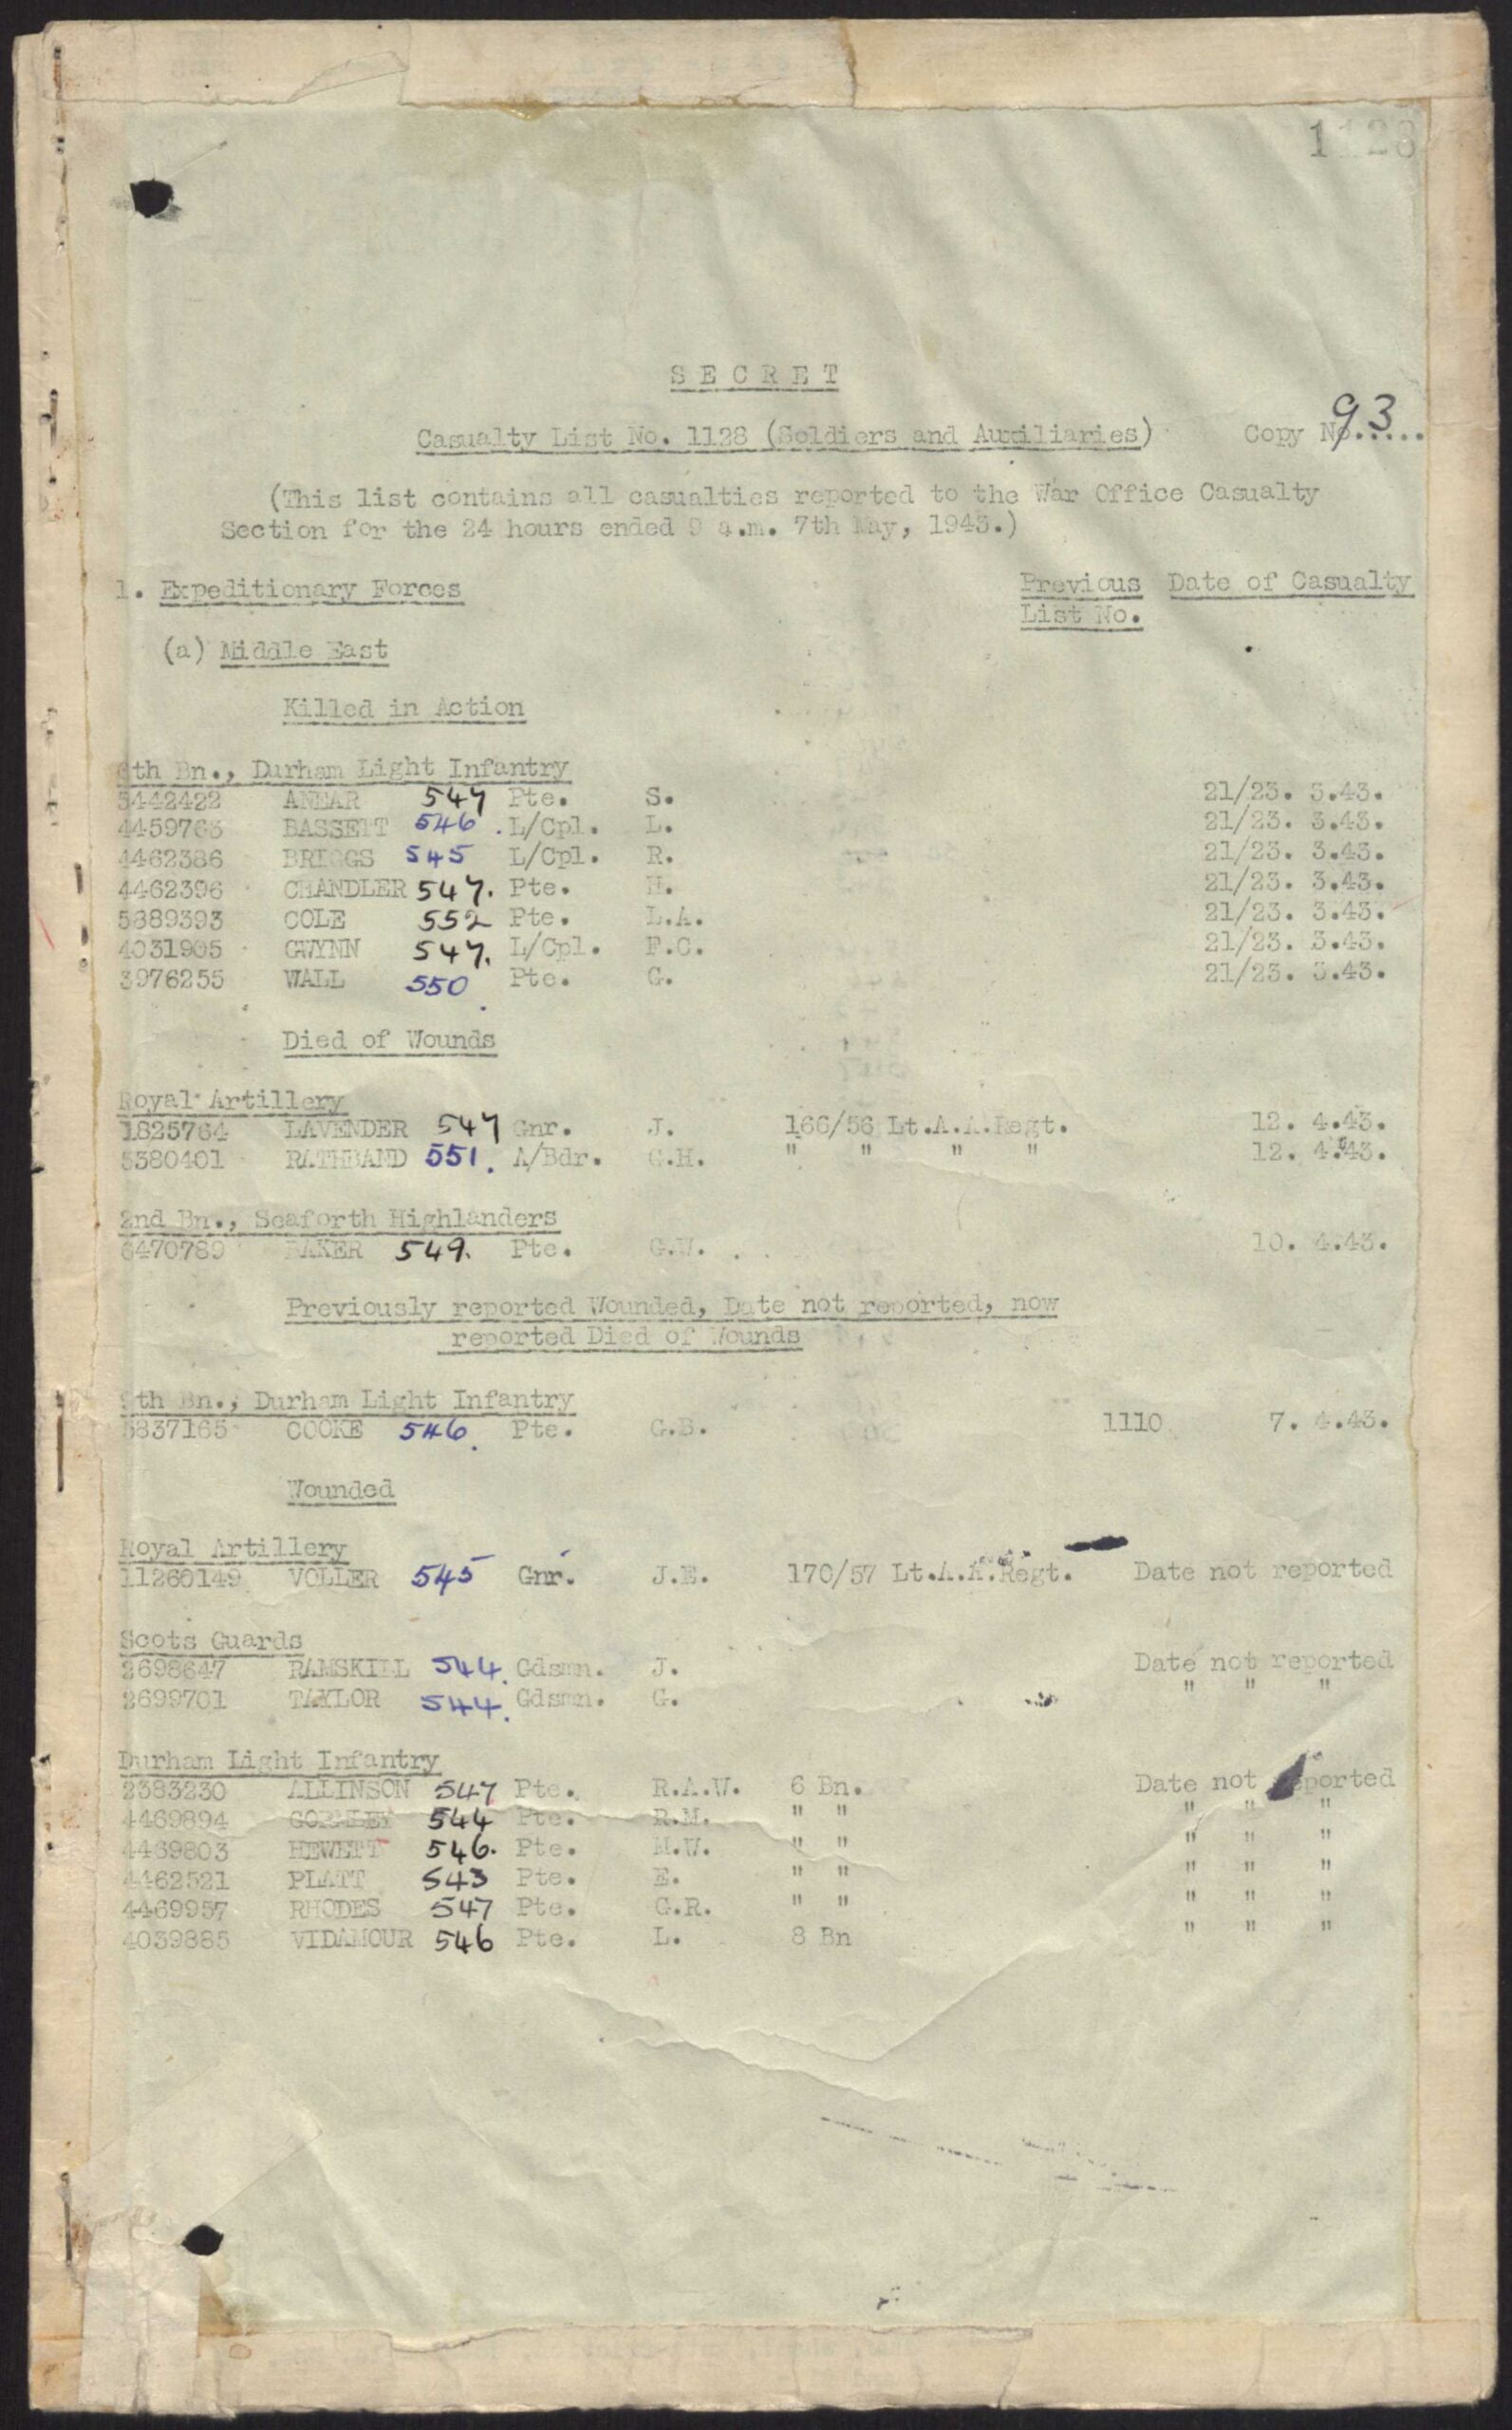 1128
SECRET
Casualty List No. 1128 (Soldiers and Auxiliaries) Copy No..... 93
(This list contains all casualties reported to the War Office Casualty
Section for the 24 hours ended 9 a.m. 7th May, 1943.)
1. Expeditionary Forces Previous Date of Casualty
List No.
(a) Middle East
Killed in Action
th Bn., Durham Light Infantry
5442422 ANEAR 547 Pte. S. 21/23. 3.43.
4459763 BASSETT 546. L/Cpl. L. 21/23. 3.43.
4462386 BRIGGS 545 L/Cpl. R. 21/23. 3.43.
4462396 CHANDLER 547. Pte. H. 21/23. 3.43.
5889393 COLE 552 Pte. L.A. 21/23. 3.43.
4031905 GWYNN 547. L/Cpl. F.C. 21/23. 3.43.
3976255 WALL 550 Pte. G. 21/23. 3.43.
Died of Wounds
Royal Artillery
1825764 LAVENDER 547 Gnr. J. 166/56 Lt.A.A.Regt. 12. 4.43.
5380401 RATHBAND 551. A/Bdr. G.H. " " " " 12. 4.43.
2nd Bn., Seaforth Highlanders
6470789 BAKER 549. Pte. G.W. 10. 4.43.
Previously reported Wounded, Date not reported, now
reported Died of Wounds
th Bn., Durham Light Infantry
5837165 COOKE 546. Pte. G.B. 1110 7. 4.43.
Wounded
Royal Artillery
11260149 VOLLER 545 Gnr. J.E. 170/57 Lt.A.A.Regt. Date not reported
Scots Guards
2698647 RAMSKILL 544. Gdsmn. J. Date not reported
2699701 TAYLOR 544. Gdsmn. G. " " "
Durham Light Infantry
2383230 ALLINSON 547 Pte. R.A.W. 6 Bn. Date not reported
4469894 GORMLEY 544 Pte. R.M. " " " " "
4469803 HEWETT 546. Pte. M.W. " " " " "
4462521 PLATT 543 Pte. E. " " " " "
4469957 RHODES 547 Pte. G.R. " " " " "
4039885 VIDAMOUR 546 Pte. L. 8 Bn " " "